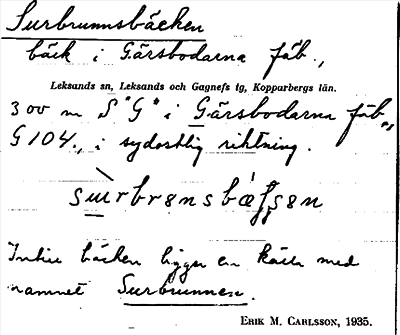 Surbrunnsbäcken
bäck i Gärsbodarna fäb.,
Leksands sn, Leksands och Gagnefs tg, Kopparbergs län.
300 m S "G" i Gärsbodarna fäb.,
G 104., i sydostlig riktning.
Intill bäcken ligger en källa med
namnet Surbrunnen.
ERIK M. CARLSSON, 1935.